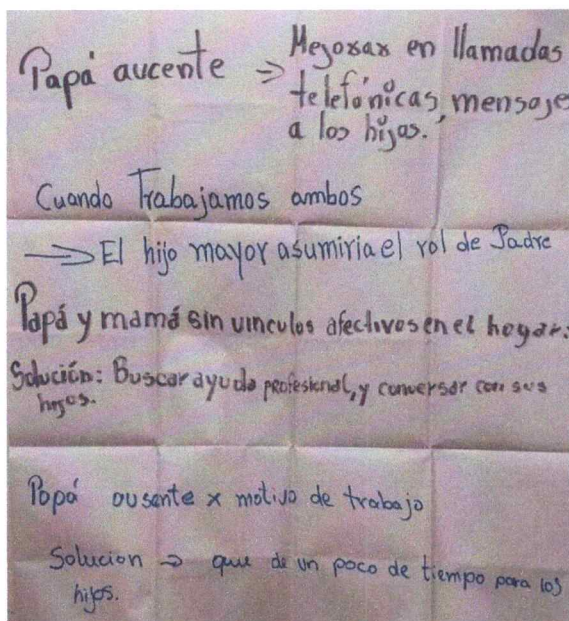 Papá aucente ⇒ Mejorar en llamadas
telefónicas, mensajes
a los hijos.
Cuando Trabajamos ambos
⇒ El hijo mayor asumiria el rol de Padre
Papá y mamá sin vinculos afectivos en el hogar:
Solución: Buscar ayuda profesional, y conversar con sus
hijos.
Papá ausente x motivo de trabajo
Solucion ⇒ que de un poco de tiempo para los
hijos.